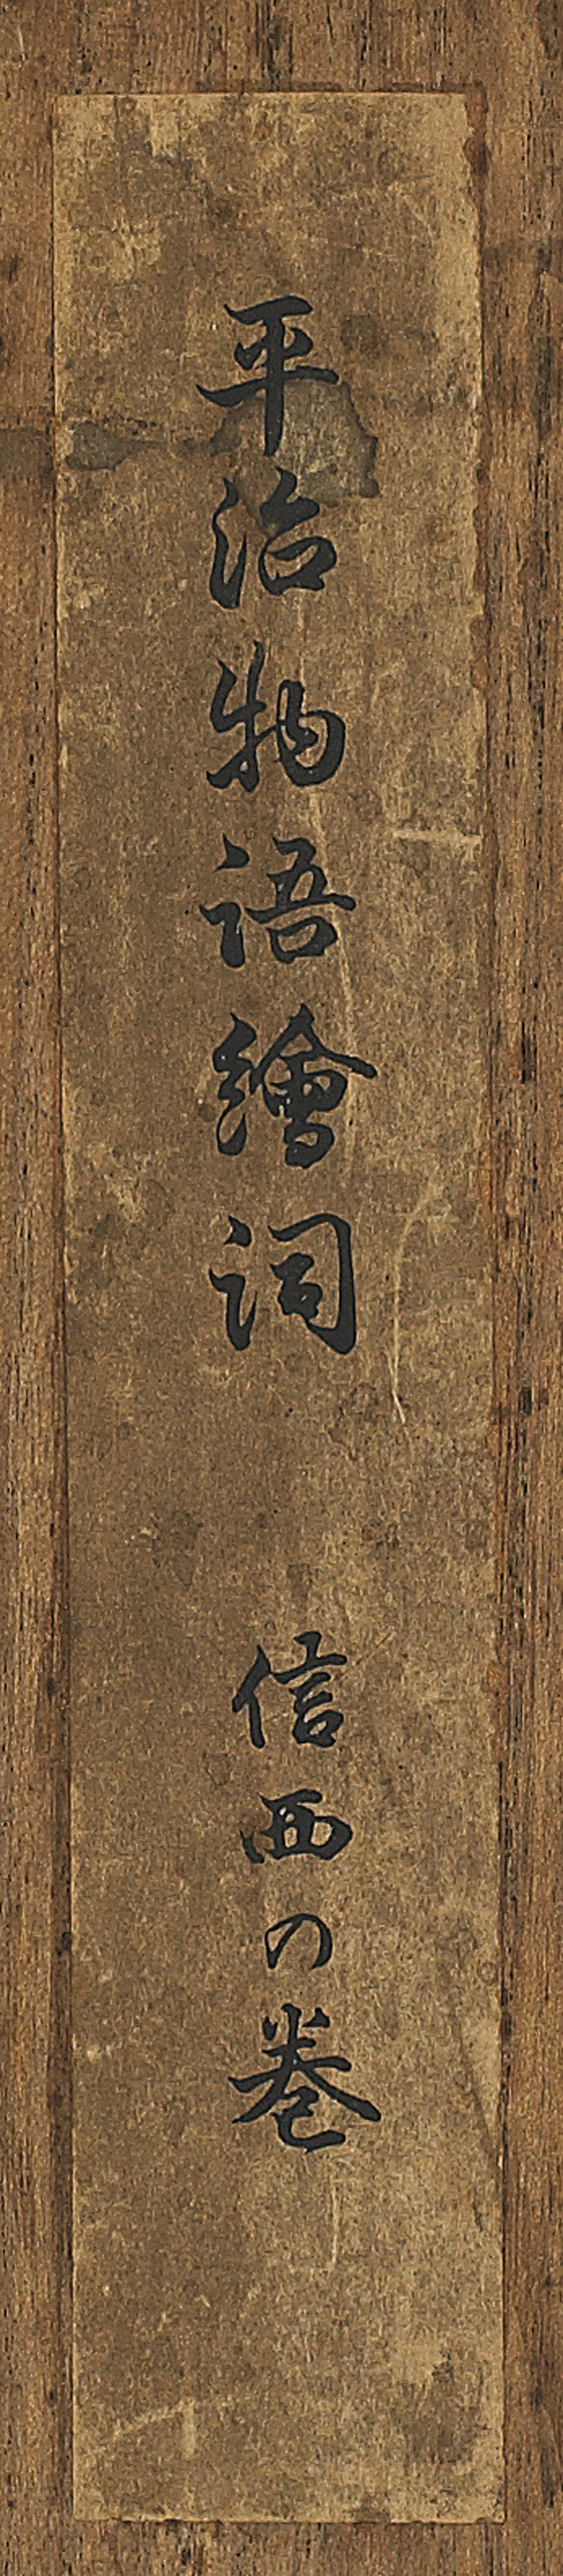 平治物語繪詞　信西の巻